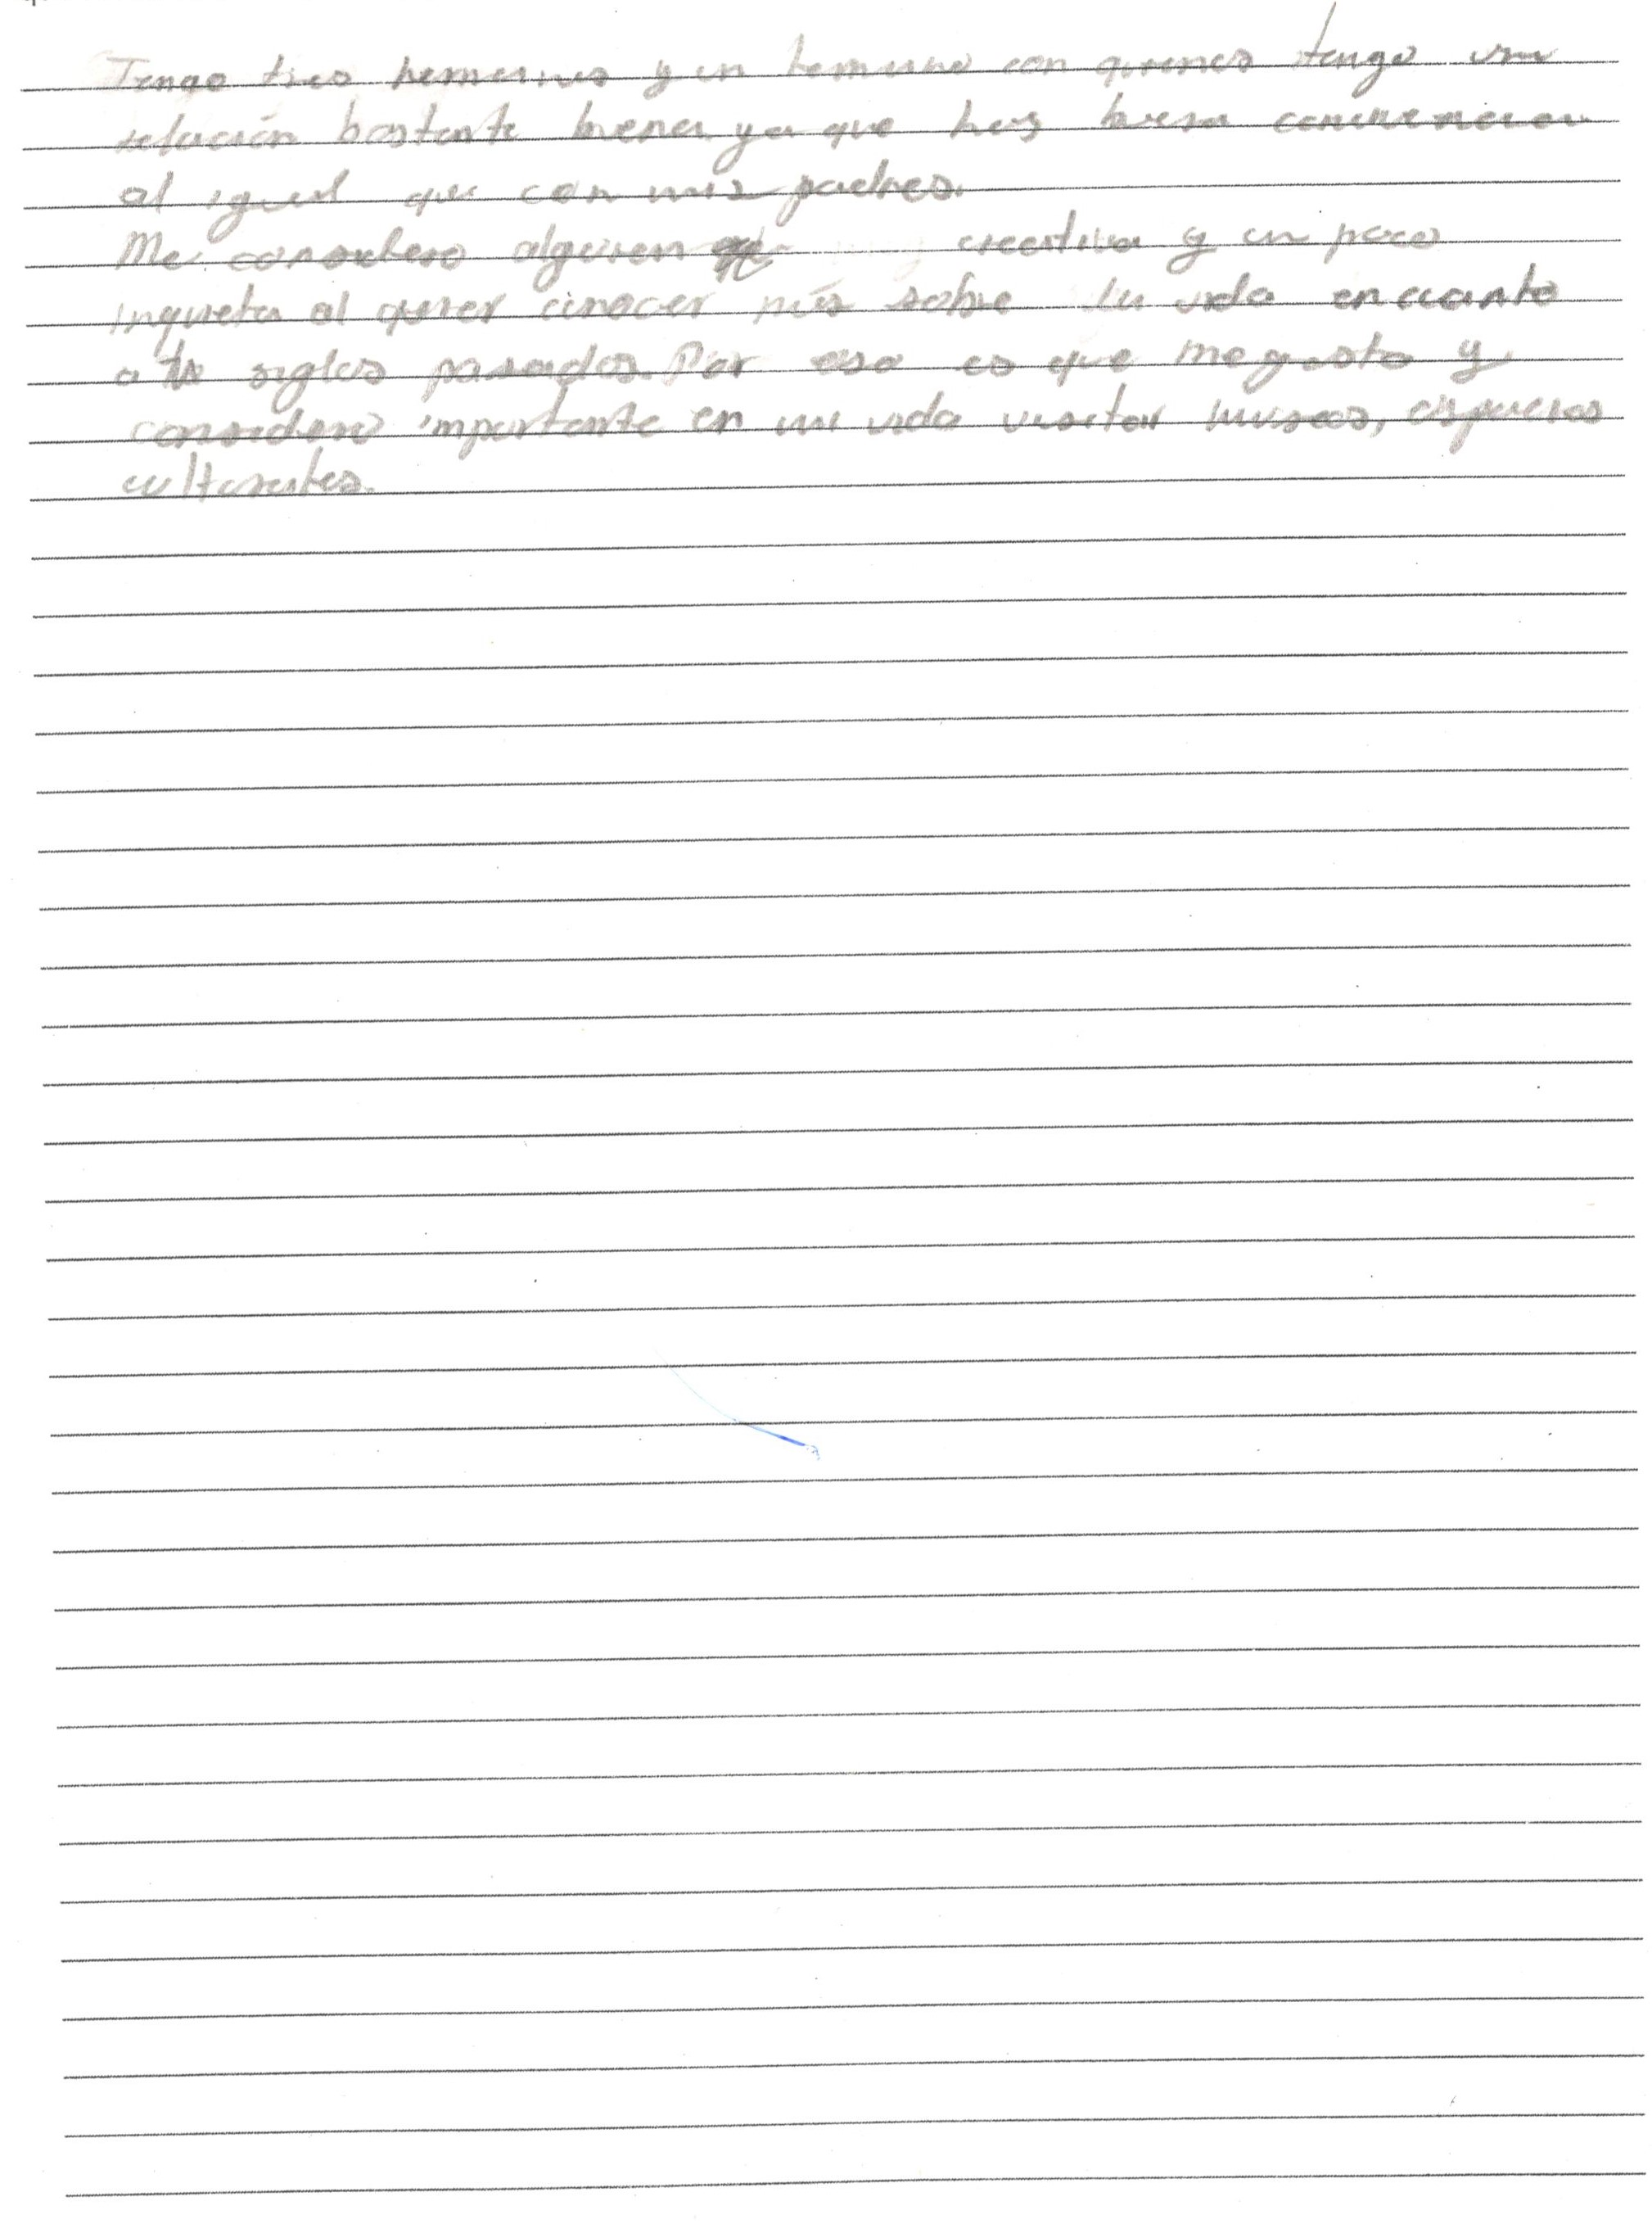 Tengo tres hermanas y un hermano con quienes tengo una
relación bastante buena ya que hay buena comunicación
al igual que con mis padres.
Me considero alguien creativa y un poco
inquieta al querer conocer más sobre la vida en cuanto
a los siglos pasados. Por eso es que me gusta y
considero importante en mi vida visitar museos, espacios
culturales.